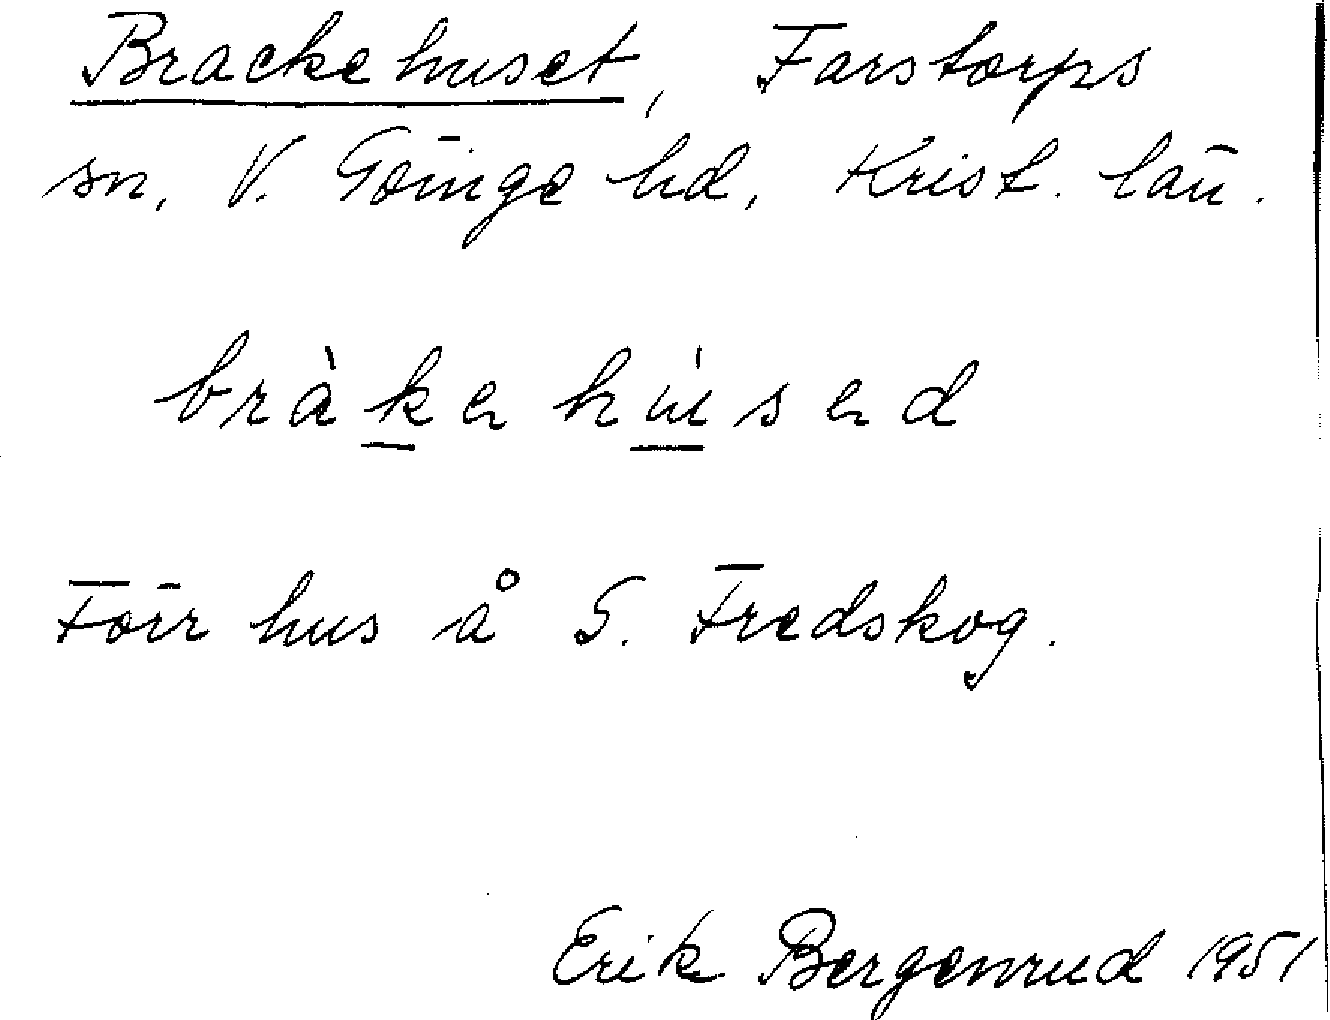 Brackehuset, Farstorps
sn, V. Göinge hd, Krist. län.
bràkehúsed
Förr hus å S. Fredskog.
Erik Bergenrud 1951